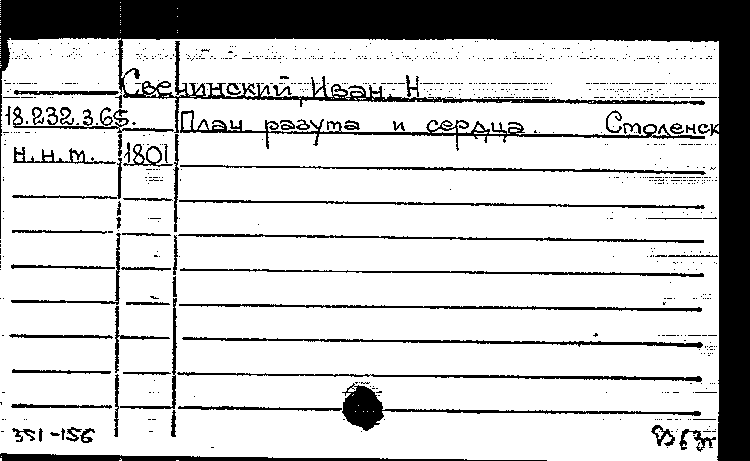 Свечинский, Иван. Н
18.232.3.65. План разута и сердца. Смоленск
н.н.т. 1801
351-156